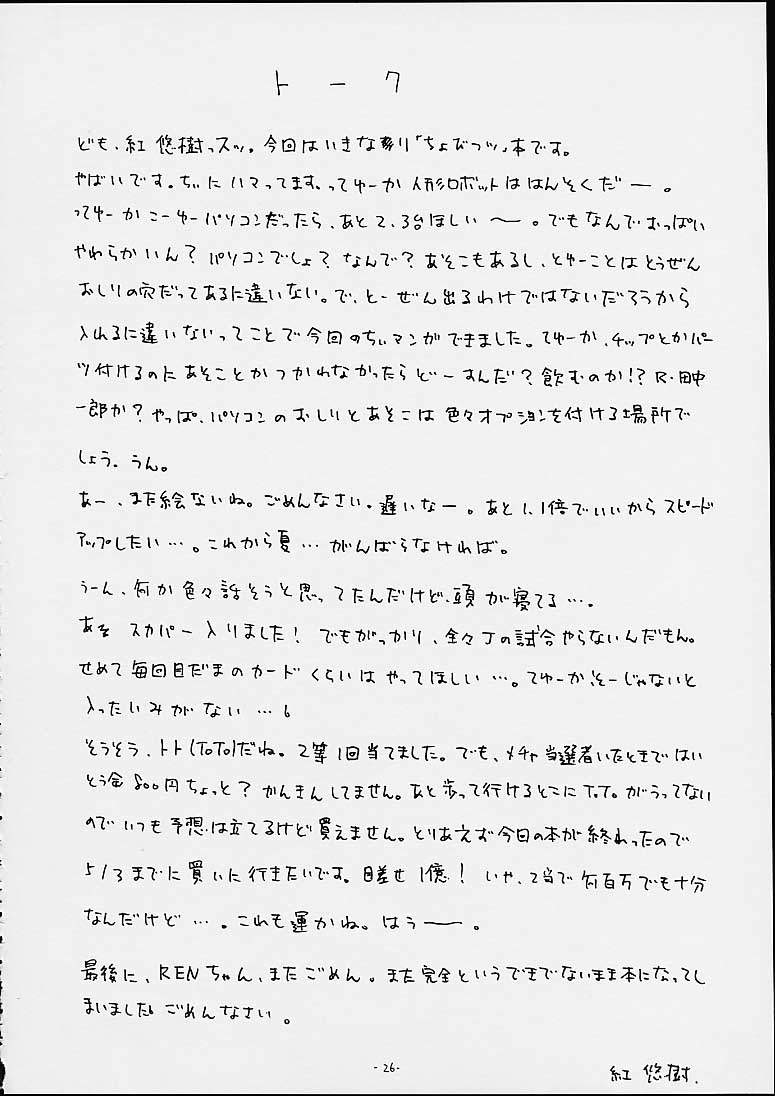 トーク
ども、紅 悠樹っスッ。今回はいきなり「ちょびっツ」本です。
やばいです。ちぃにハマってます、ってゆーか 人形ロボットははんそくだー。
ってゆーかこーゆーパソコンだったら、あと2、3台ほしい〜。でもなんでおっぱい
やわらかいん？パソコンでしょ？なんで？あそこもあるし、とゆーことはとうぜん
おしりの穴だってあるに違いない。で、とーぜん出るわけではないだろうから
入れるに違いないってことで今回のちぃマンガできました。てゆーか、チップとかパー
ツ付けるのにあそことかつかわなかったらどーすんだ？飲むのか!?R・田中
一郎か？やっぱ、パソコンのおしりとあそこは色々オプションを付ける場所で
しょう。うん。
あー、また絵ないね。ごめんなさい。遅いなー。あと1、1倍でいいからスピード
アップしたい…。これから夏…がんばらなければ。
うーん、何か色々話そうと思ってたんだけど、頭が寝てる…。
あそ スカパー入りました！でもがっかり、全々Jの試合やらないんだもん。
せめて毎回目だまのカードくらいはやってほしい…。てゆーか、そーじゃないと
入ったいみがない…。
そうそう、トト(ToTo)だね。2等1回当てました。でも、メチャ当選者いたときではい
とう金800円ちょっと？かんきんしてません。あと歩って行けるとこにT.T.がうってない
のでいつも予想は立てるけど買えません。とりあえず今回の本が終わったので
5/3までに買いに行きたいです。目差せ1億！いや、2当で何百万でも十分
なんだけど…。これも運かね。はぅ——。
最後に、RENちゃん、またごめん。また完全というできでないまま本になってし
まいました。ごめんなさい。
-26-
紅 悠樹.